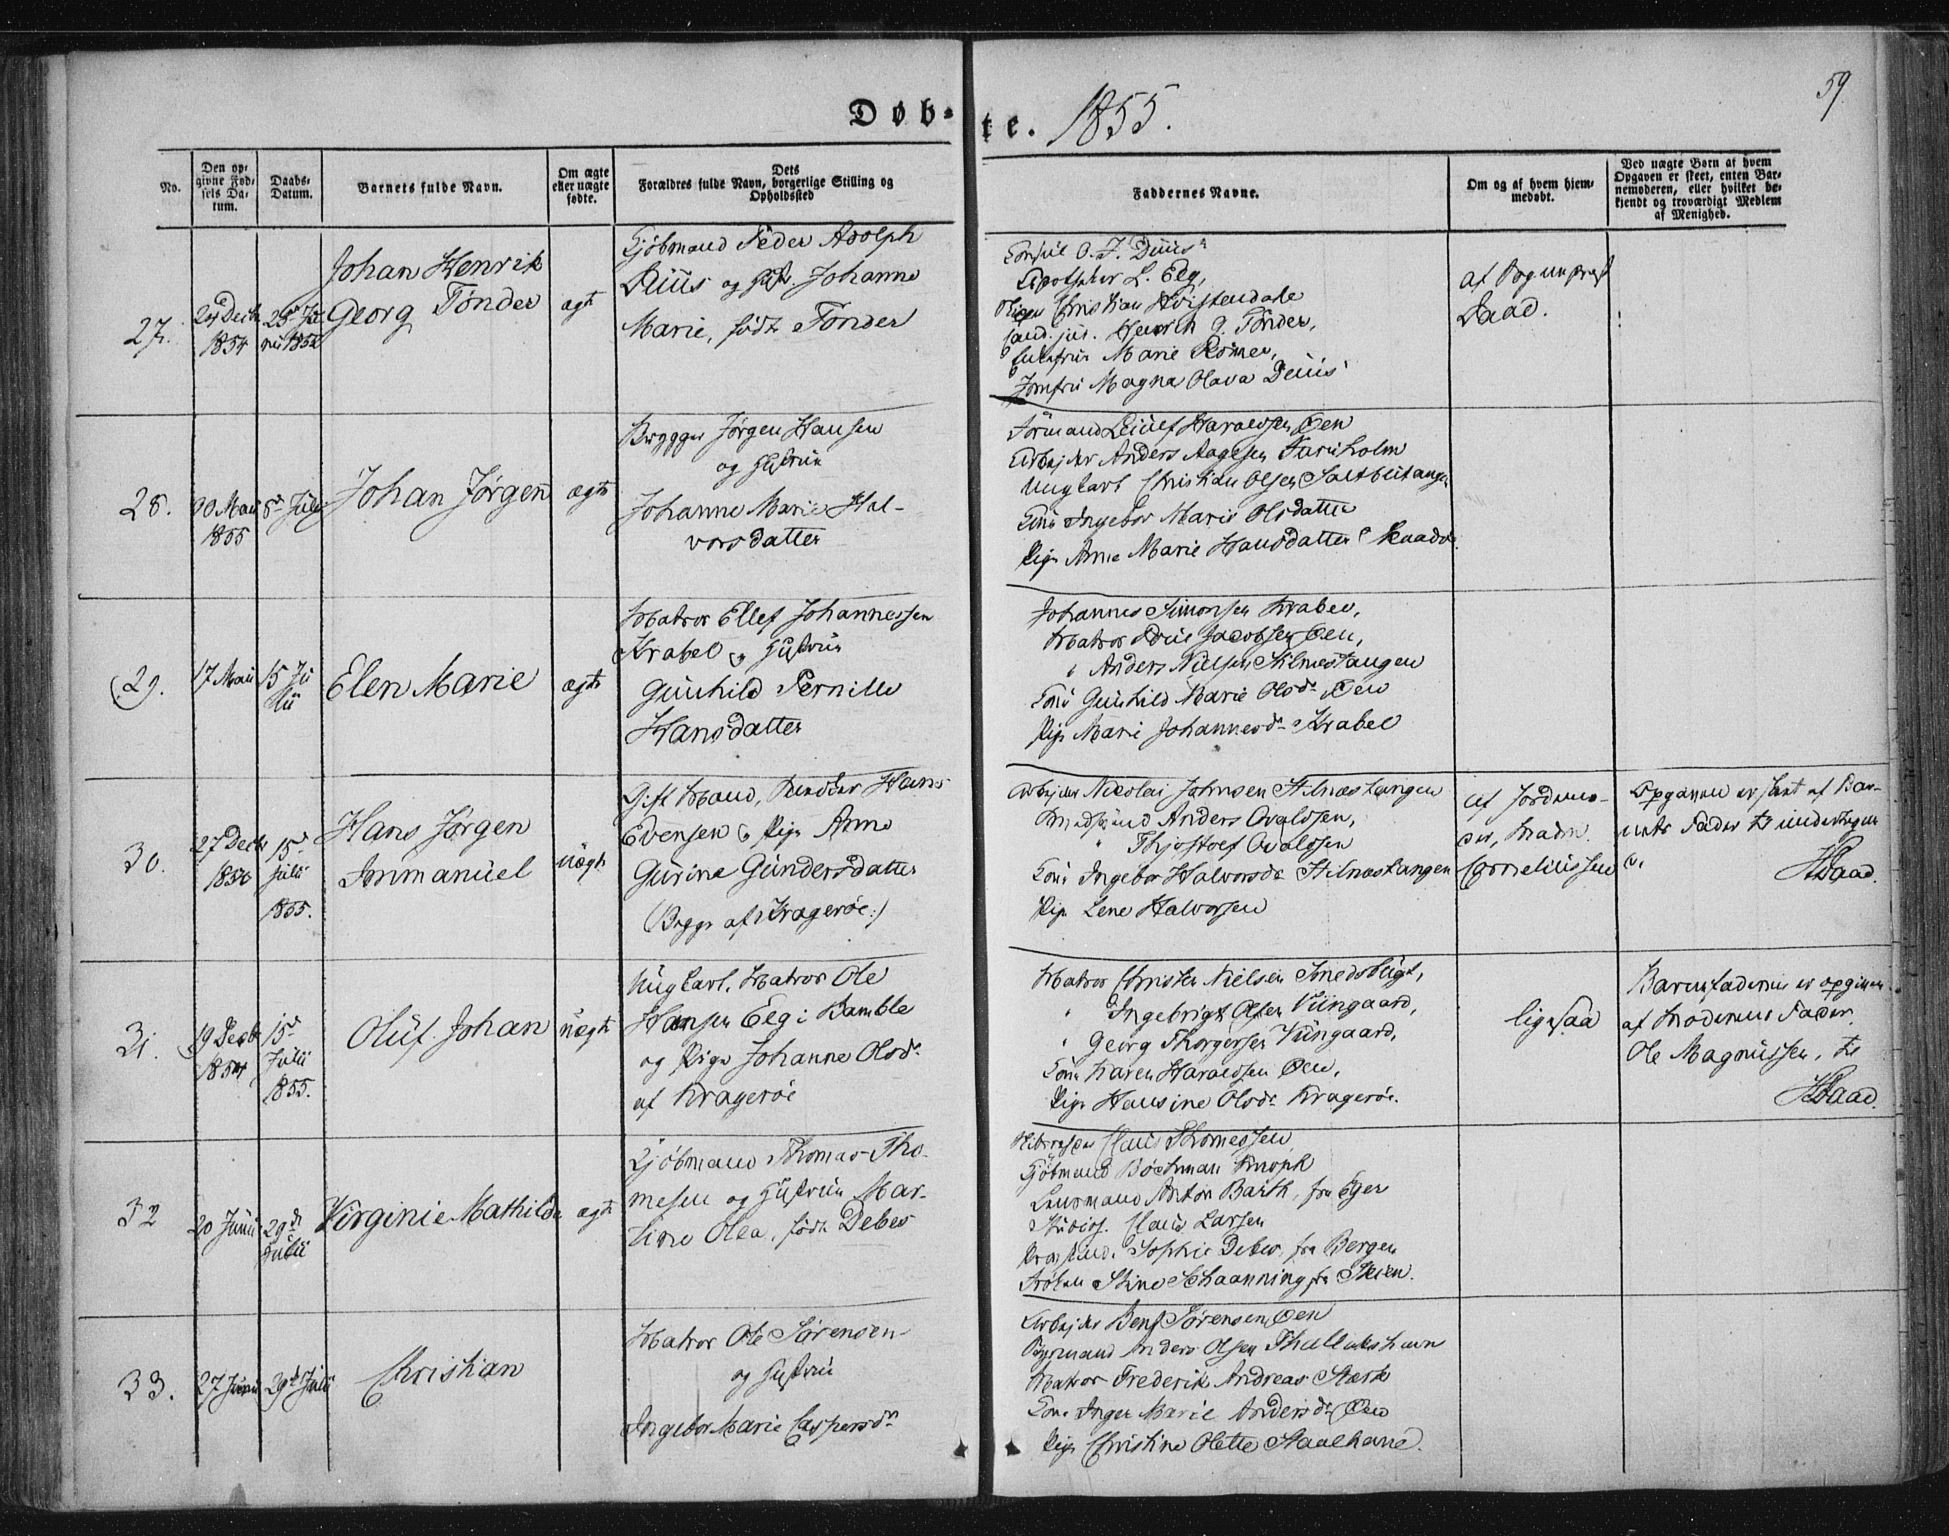 59.
Døb-te. 1855.
No.
Den op-
givne Fød-
sels Da-
tum.
Daabs-
Datum.
Barnets fulde Navn.
Om ægte
eller uægte
fødte.
Dets
Forældres fulde Navn, borgerlige Stilling og
Opholdssted
Faddernes Navne.
Om og af hvem hjem-
medøbt.
Ved uægte Børn af hvem
Opgaven er skeet, enten Bar-
nemoderen, eller hvilket be-
kjendt og troværdigt Medlem
af Menighed.
27.
Decbr
1854
Johan Henrik
Georg Tønder
ægte
Kjøbmand Peder Adolph
Duus og Johanne
Marie, født Tønder
Consul O. F. Duus
L. Eeg,
Christian Hvistendahl
Cand. jur. Henrik G. Tønder,
Marie Rømer,
Jomfru Magna Olava Duus
af Sognepræst
Daae.
28.
30 Mai
1855
8de Juli
Johan Jørgen
ægte
Brygger Jørgen Hansen
og Hustrue
Johanne Marie Hal-
vorsdatter
Formand Haraldsen Øen
Arbejder Anders Aagesen Furuholm
Ungkarl Christian Olsen Saltbutangen
Kone Ingebor Marie Olsdatter
Pige Anne Marie Hansdatter
29.
17 Mai
15 Ju
lii
Elen Marie
ægte
Matros Ellef Johannessen
Krabel og Hustrue
Gunhild Pernille
Hansdatter
Johannes Simonsen Krabel,
Matros Jacobsen Øen,
" Anders Nielsen Stilnestangen
Kone Gunhild Marie Olsdr Øen
Pige Marie Johannesdr Krabel
30.
27 Decbr
15de
Julii
1855.
Hans Jørgen
Immanuel
uægte
Gift Mand, Hans
Evensen og Pige Anne
Gurine Gundersdatter
(Begge af Kragerøe:)
Arbejder Nicolai Johnsen Stilnæstangen
Anders Ovaldsen,
" Thjostolf Ovaldsen
Kone Ingebor Halvorsdr Stilnæstangen
Pige Lene Halvorsen
af Jordemo-
der, Madm.
Corneliussen
Opgaven er skeet af Bar-
nets Fader til undertegne
de.
HDaae.
31.
19 Decbr
1854
15de
Julii
1855.
Oluf Johan
uægte
Ungkarl, Matros Ole
Hansen Eeg i Bamble
og Pige Johanne Olsdr
af Kragerøe
Matros Christen Nielsen Smedsbugt,
" Ingebrigt Olsen Viingaard,
" Georg Thorgersen Viingaard,
Kone Karen Haraldsen Øen,
Pige Hansine Olsdr Kragerøe.
ligesaa
Barnefaderen er opgiven
af Moderens Fader,
Ole Magnussen, til
HDaae.
32
20 Junii
29de
Julii
Virginie Mathilde
ægte
Kjøbmand Thomas Tho-
mesen og Hustrue Mar-
tine Olea, født Debes
Claus Thomessen
Kjøbmand Bochman Knoph
Lensmand Anton Barth, fra Eger
Studios. Claus Larsen
Sophie Debes, fra Bergen
Frøken Stine Schaanning fra Skien.
33.
27 Junii
29de Julii
Christian
Matros Ole Sørensen
og Hustrue
Ingebor Marie Caspersdr
Arbejder Bent Sørensen Øen
Anders Olsen Thallakshavn
Matros Frederik Andreas Stærk
Kone Inger Marie Andersdr Øen
Pige Christine Olette Staalhane.